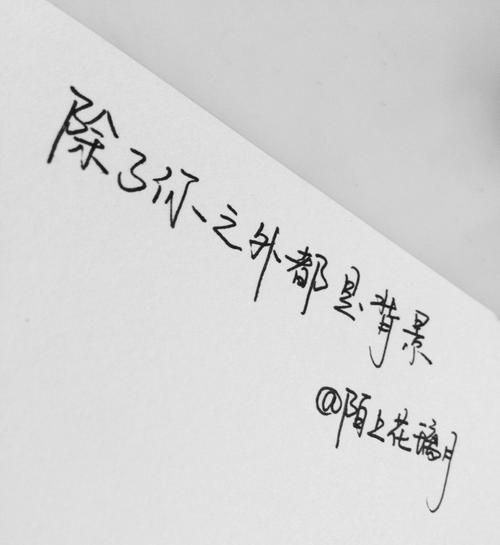 除了你之外都是背景
@陌上花璃月